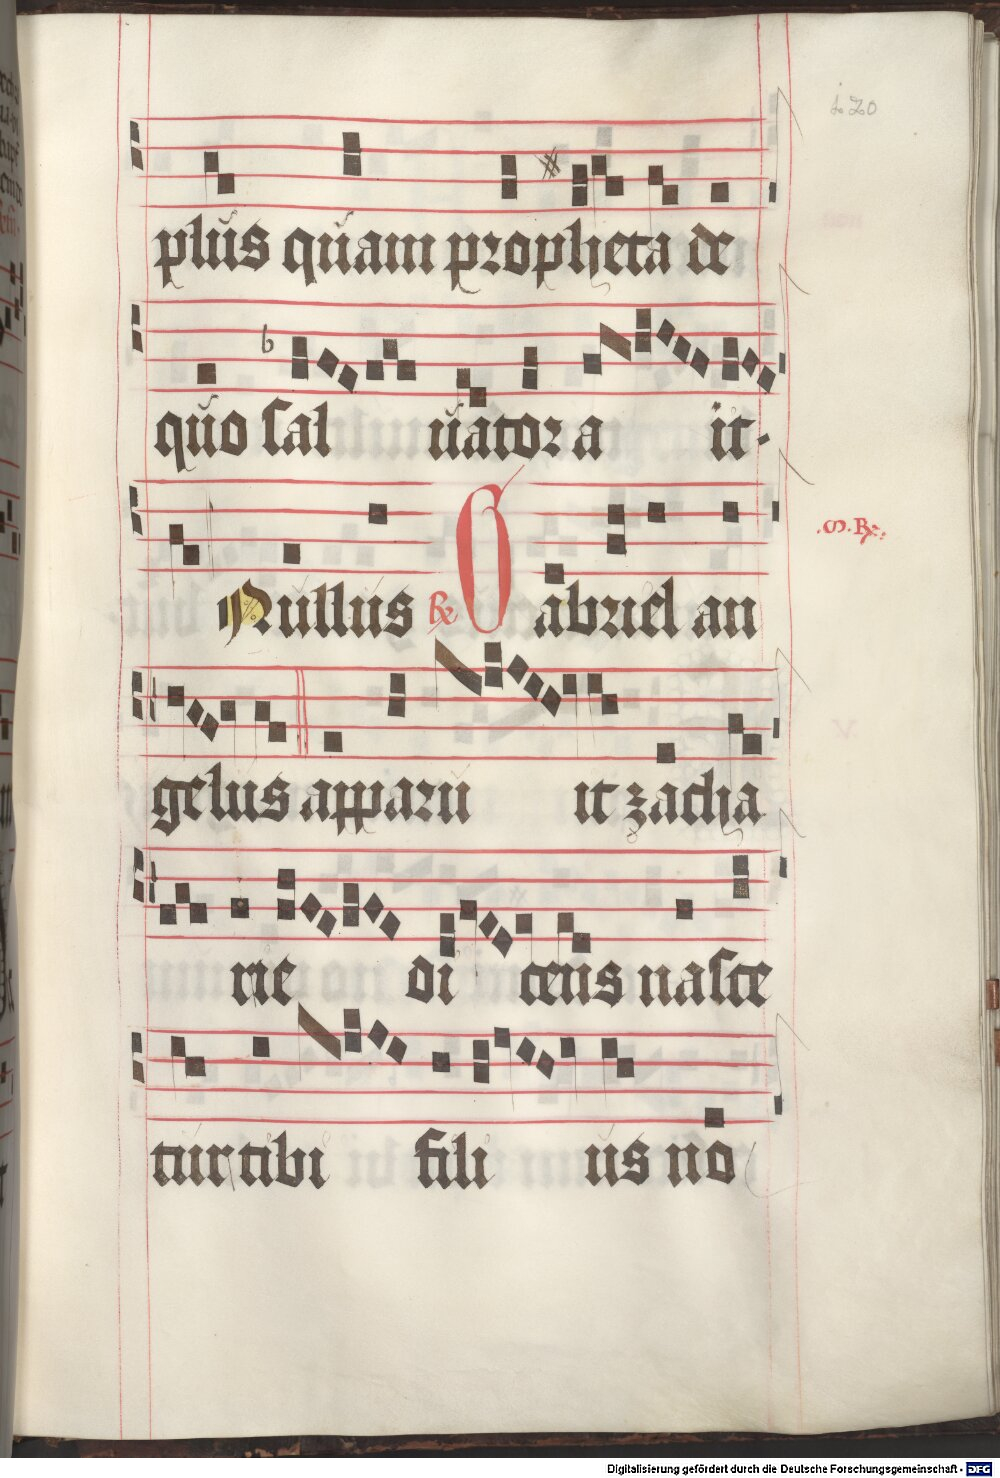 120
plus quam propheta de
quo sal uator a it.
Nullus ℞ Gabriel an
.S.℞.
gelus apparu it zacha
rie di cens nasce
tur tibi fili us no
Digitalisierung gefördert durch die Deutsche Forschungsgemeinschaft - DFG